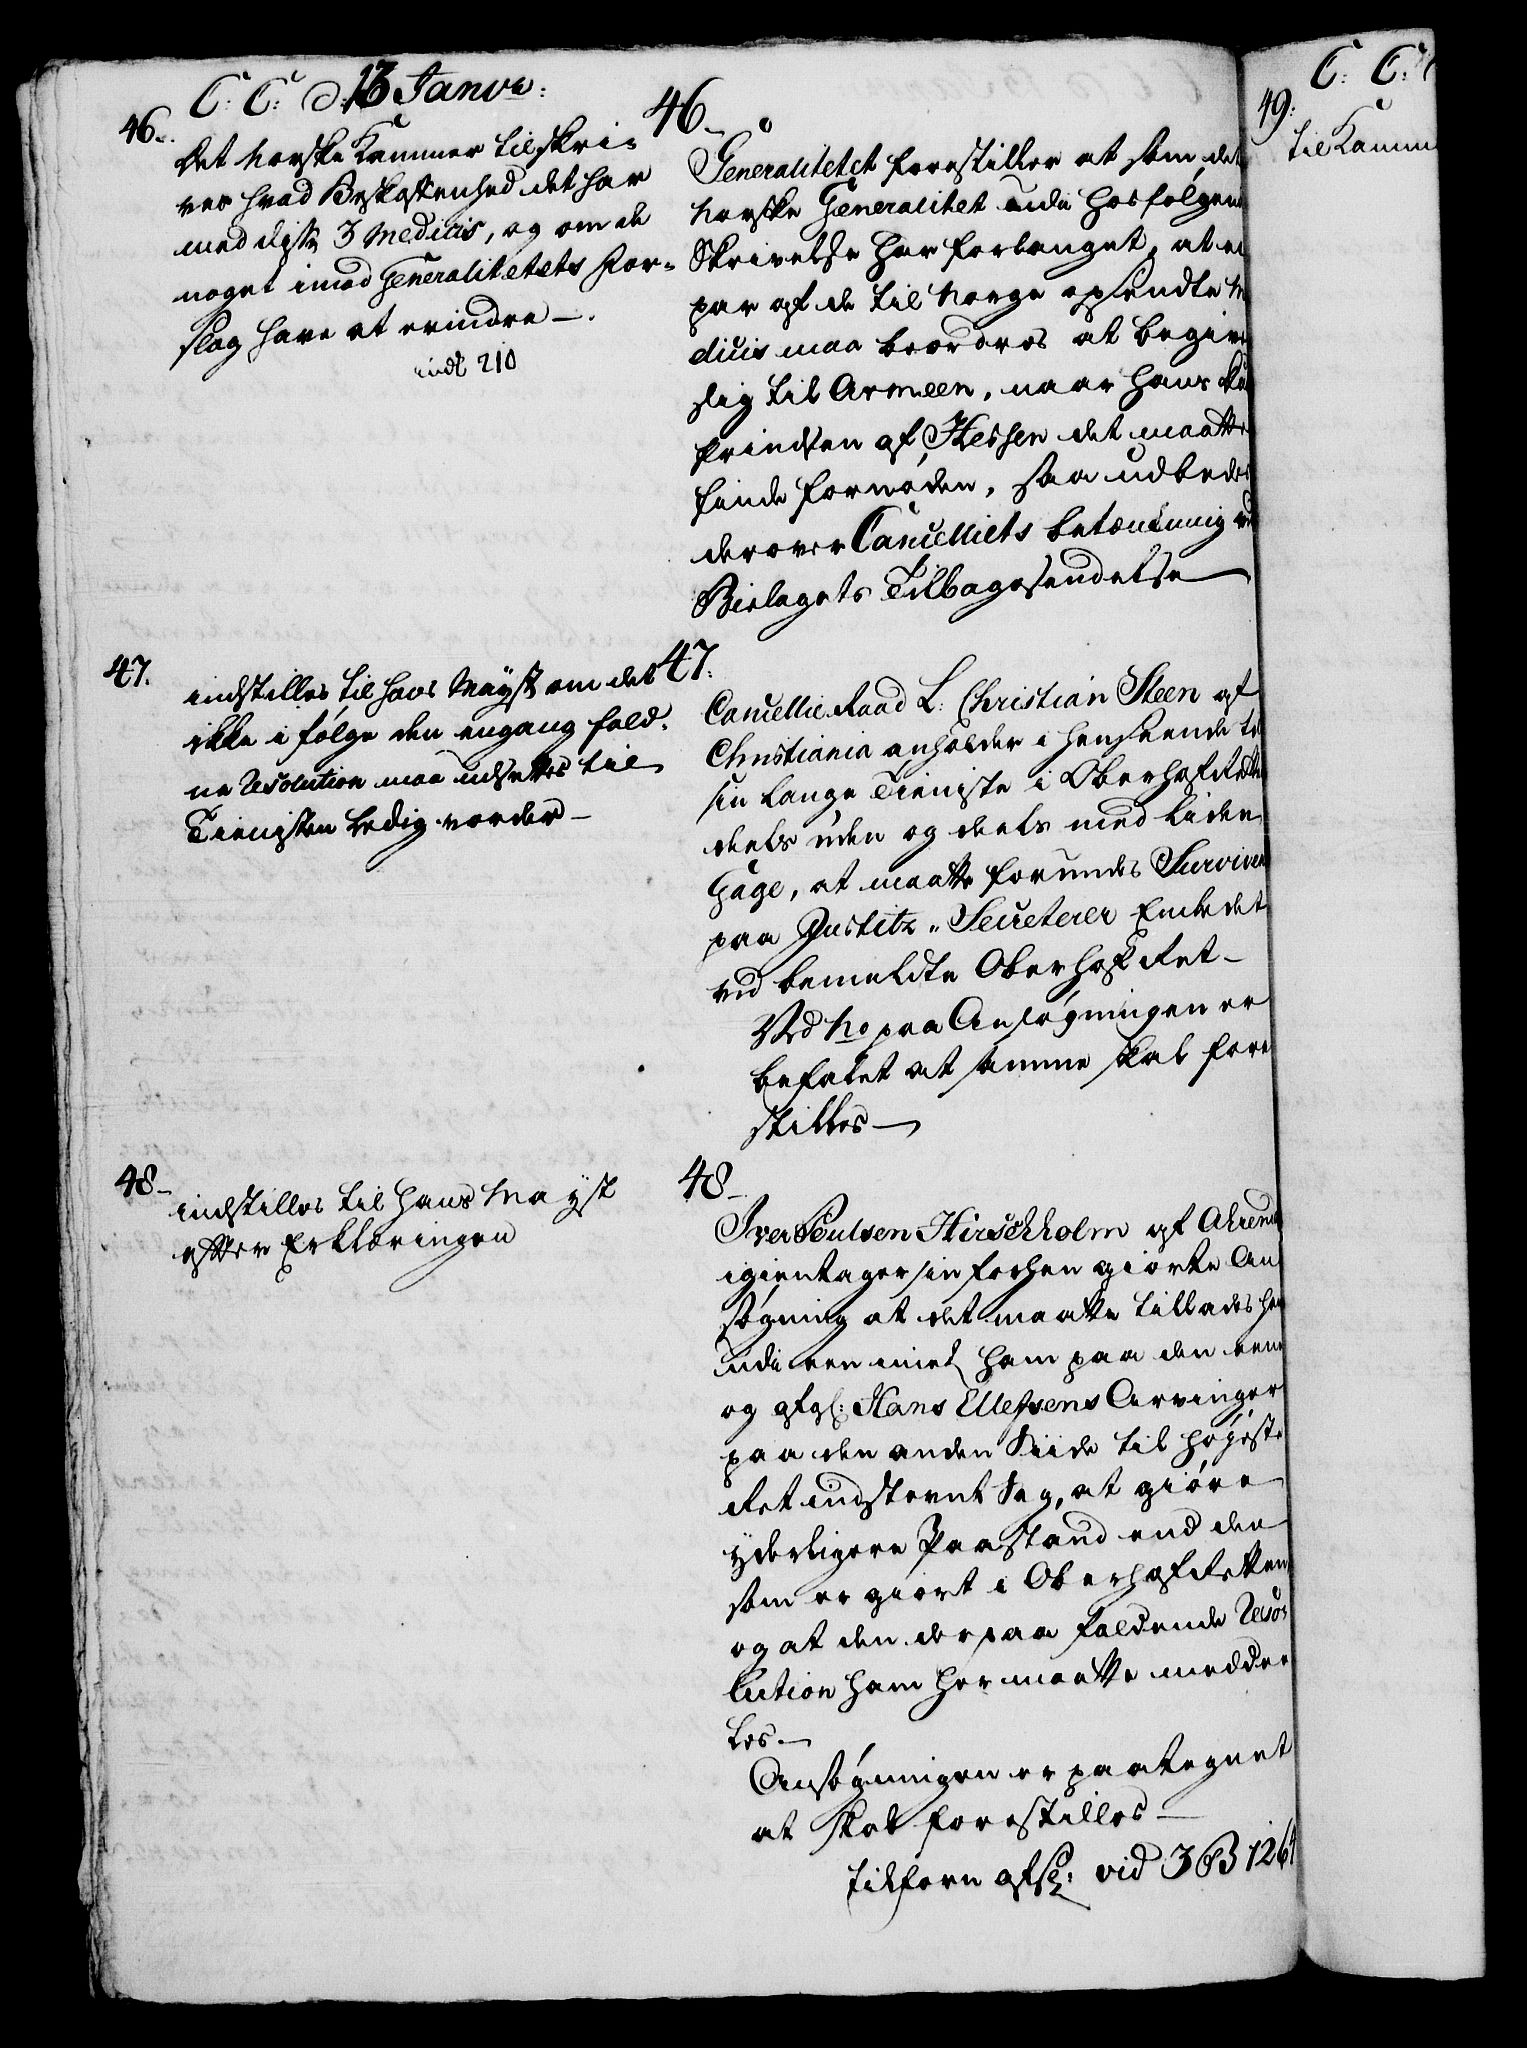 C: C: d: 13 Janvr:
46.
Det Norske Kammer tilskri-
ves hvad Beskaffenhed det har
med disse 3 Medicis, og om de
noget imod Generalitetets For-
slag have at erindre —.
indk 210
46.
Generalitetet forestiller at som det
Norske Generalitet udi hosfølgen
Skrivelse har forlanget, at et
par af de til Norge opsendte Me
dicis maa beordres at begive
sig til Armeen, naar Hans
Printsen af Hessen det maatte
finde fornøden, saa udbedes
derover Cancelliets betænkning
Bielagets Tilbagesendelse —
47.
indstilles til Hans Mayst om det
ikke i følge den engang fald-
ne Resolution maa udsættes til
Tienisten ledig vorder —
47.
Cancellie Raad L: Christian Steen af
Christiania anholder i henseende til
sin lange Tieniste i Oberhofretten
deels uden og deels med liden
Gage, at maatte forundes Surviven
paa Justitz-Secreterer Embedet
ved bemeldte Oberhofret —
Ved No paa Ansøgningen er
befalet at samme skal fore
stilles —
48 —
indstilles til Hans Mayst
efter Erklæringen
48 —
Iver Poulsen Hirschholm af Ahrend
igientager sin forhen giorte An
søgning at det maatte tillades ham
udi een imel ham paa den eene
og afgl: Hans Ellefsens Arvinger
paa den anden Siide til Høyeste
Ret indstevnt Sag, at giøre
yderligere Paastand end den
som er giort i Oberhofretten
og at den derpaa faldende Reso
lution ham her maatte meddee
les —
Ansøgningen er paategnet
at skal forestilles —
tilforn afsl: vid 3 B 1264
C: C:
49:
til Kamm